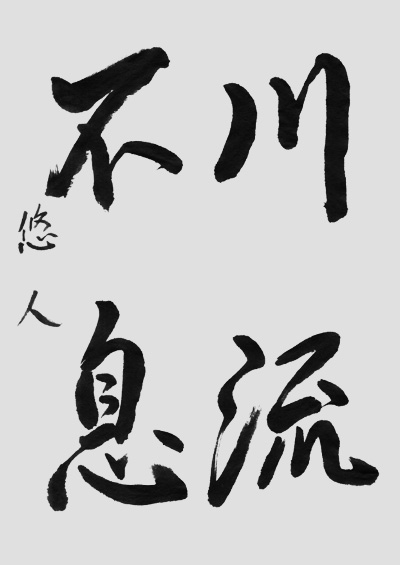 川流
不息
悠人